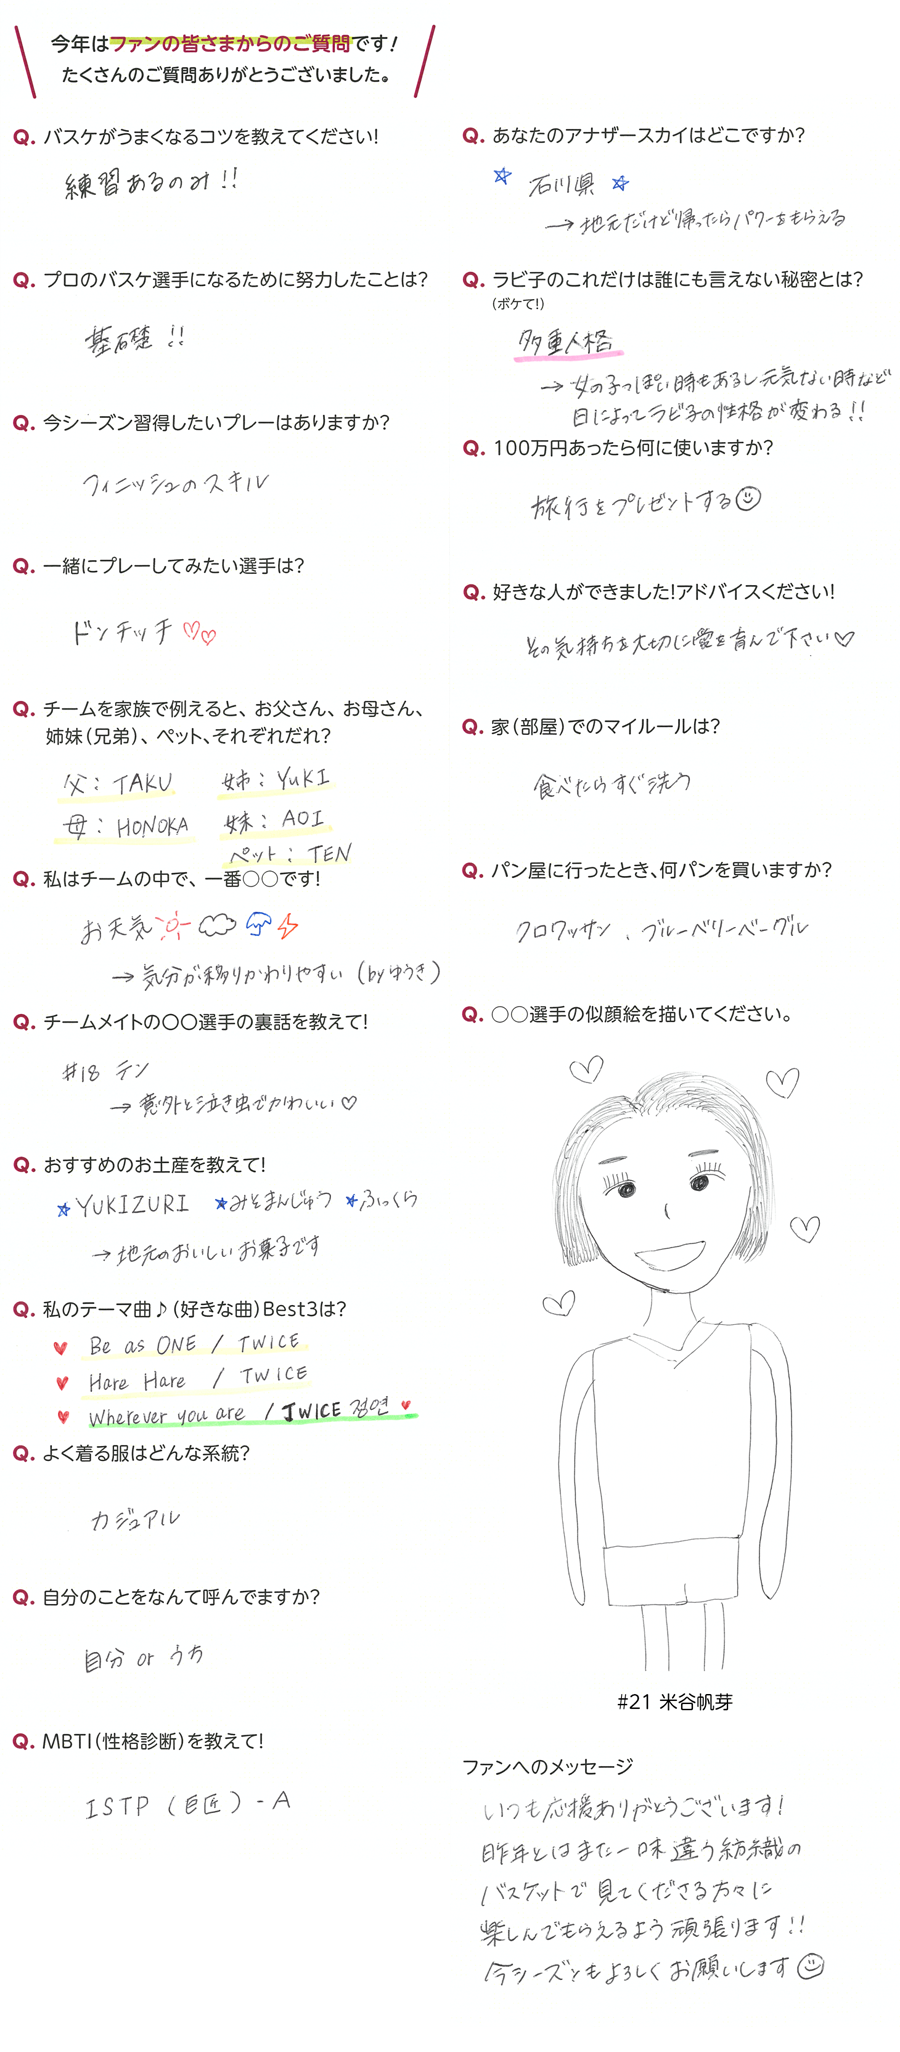 今年はファンの皆さまからのご質問です!
たくさんのご質問ありがとうございました。
Q. バスケがうまくなるコツを教えてください!
練習あるのみ!!
Q. プロのバスケ選手になるために努力したことは?
基礎!!
Q. 今シーズン習得したいプレーはありますか?
フィニッシュのスキル
Q. 一緒にプレーしてみたい選手は?
ドンチッチ♡♡
Q. チームを家族で例えると、お父さん、お母さん、
姉妹(兄弟)、ペット、それぞれだれ?
父:TAKU 姉:YUKI
母:HONOKA 妹:AOI
ペット:TEN
Q. 私はチームの中で、一番○○です!
お天気
→気分が移りかわりやすい(byゆうき)
Q. チームメイトの○○選手の裏話を教えて!
#18 テン
→意外と泣き虫でかわいい♡
Q. おすすめのお土産を教えて!
★YUKIZURI ★みそまんじゅう ★ふっくら
→地元のおいしいお菓子です
Q. 私のテーマ曲♪(好きな曲)Best3は?
♥ Be as ONE / TWICE
♥ Hare Hare / TWICE
♥ Wherever you are / TWICE 정연 ♥
Q. よく着る服はどんな系統?
カジュアル
Q. 自分のことをなんて呼んでますか?
自分 or うち
Q. MBTI(性格診断)を教えて!
ISTP(巨匠)-A
Q. あなたのアナザースカイはどこですか?
☆ 石川県 ☆
→地元だけど帰ったらパワーをもらえる
Q. ラビ子のこれだけは誰にも言えない秘密とは?
(ボケて!)
多重人格
→女の子っぽい時もあるし元気ない時など
日によってラビ子の性格が変わる!!
Q. 100万円あったら何に使いますか?
旅行をプレゼントする☺
Q. 好きな人ができました!アドバイスください!
その気持ちを大切に愛を育んで下さい♡
Q. 家(部屋)でのマイルールは?
食べたらすぐ洗う
Q. パン屋に行ったとき、何パンを買いますか?
クロワッサン、ブルーベリーベーグル
Q. ○○選手の似顔絵を描いてください。
#21 米谷帆芽
ファンへのメッセージ
いつも応援ありがとうございます!
昨年とはまた一味違う紡織の
バスケットで見てくださる方々に
楽しんでもらえるよう頑張ります!!
今シーズンもよろしくお願いします☺